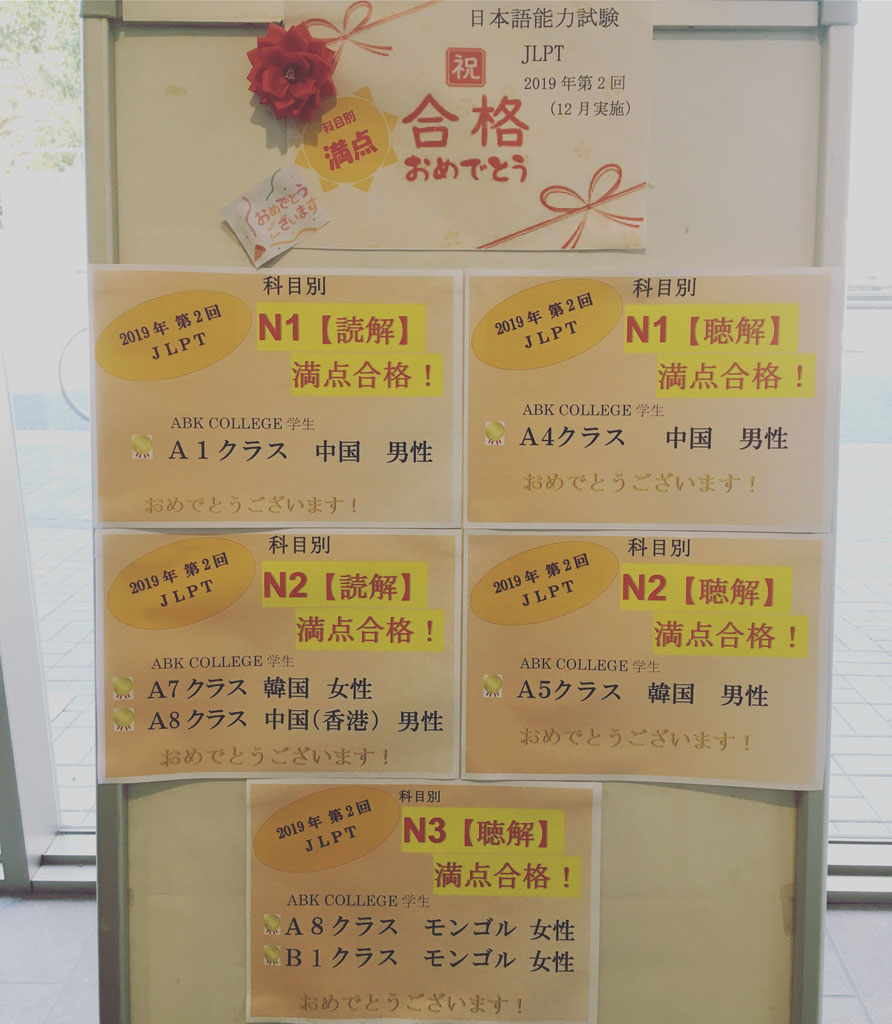 日本語能力試験
JLPT
2019年第2回
（12月実施）
祝
合格
おめでとう
科目別
満点
おめでとう
ございます
科目別
2019年 第2回
JLPT
N1【読解】
満点合格！
ABK COLLEGE 学生
A1クラス 中国 男性
おめでとうございます！
科目別
2019年 第2回
JLPT
N1【聴解】
満点合格！
ABK COLLEGE 学生
A4クラス 中国 男性
おめでとうございます！
科目別
2019年 第2回
JLPT
N2【読解】
満点合格！
ABK COLLEGE 学生
A7クラス 韓国 女性
A8クラス 中国（香港） 男性
おめでとうございます！
科目別
2019年 第2回
JLPT
N2【聴解】
満点合格！
ABK COLLEGE 学生
A5クラス 韓国 男性
おめでとうございます！
科目別
2019年 第2回
JLPT
N3【聴解】
満点合格！
ABK COLLEGE 学生
A8クラス モンゴル 女性
B1クラス モンゴル 女性
おめでとうございます！